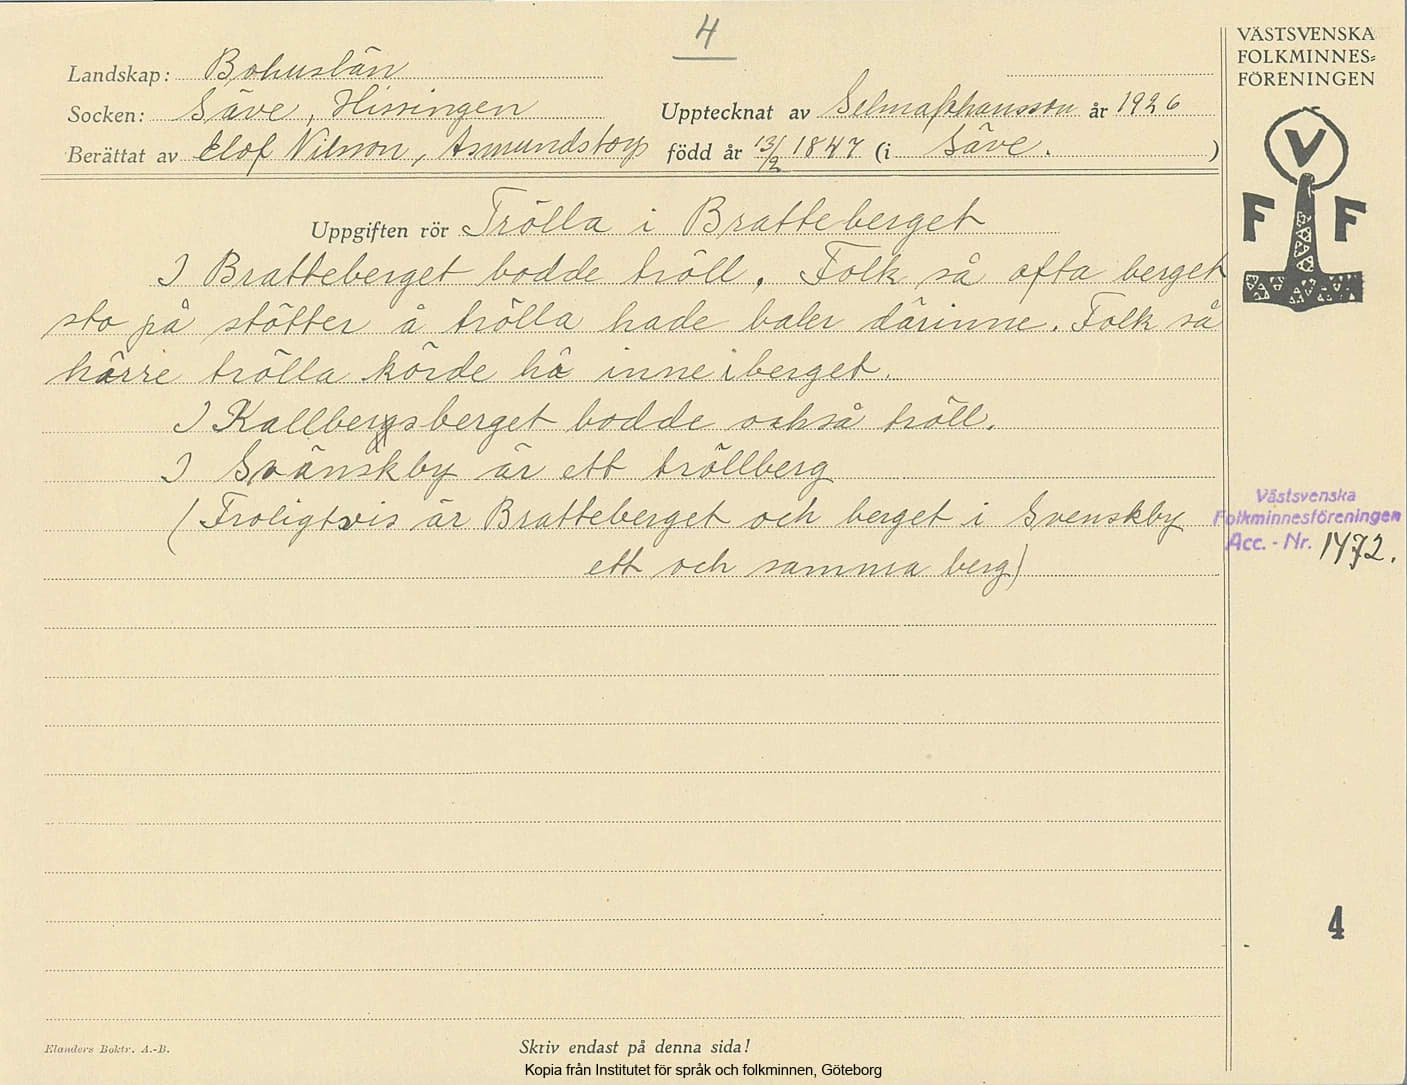 4
VÄSTSVENSKA
FOLKMINNES=
FÖRENINGEN
Landskap: Bohuslän
Socken: Säve, Hisingen Upptecknat av Selma Johansson år 1926
Berättat av Elof Nilsson, Asmundstorp född år 13/2 1847 (i Säve. )
V
F F
Uppgiften rör Trölla i Bratteberget
I Bratteberget bodde tröll. Folk så ofta berget
sto på stötter å trölla hade baler därinne. Folk så
hörre trölla körde hö inne i berget.
I Kallbergsberget bodde också tröll.
I Svänskby är ett tröllberg
(Troligtvis är Bratteberget och berget i Svenskby
ett och samma berg)
Västsvenska
Folkminnesföreningen
Acc. - Nr. 1472.
4
Elanders Boktr. A.-B.
Skriv endast på denna sida!
Kopia från Institutet för språk och folkminnen, Göteborg